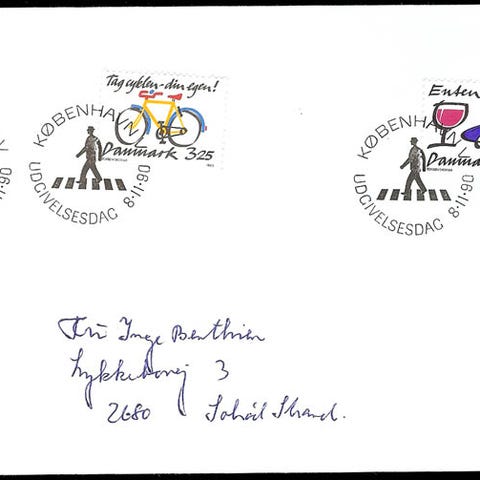 Tag cyklen - din egen!
Danmark 325
KØBENHAVN
UDGIVELSESDAG 8·11·90
Enten
Danma
KØBENHAVN
UDGIVELSESDAG 8·11·90
90
Fru Inge Benthien
Lykkebovej 3
2680 Solrød Strand.